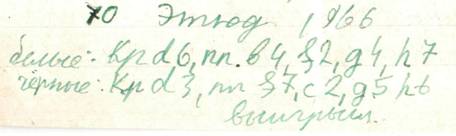 70 Этюд 1966
белые: Крd6, пп. в4, f2, g4, h7
чёрные: Крd3, пп f7, c2, g5 h6
выигрыш.